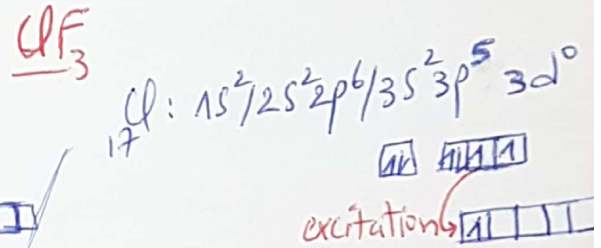 ClF₃
₁₇Cl: 1s²/2s²2p⁶/3s²3p⁵ 3d⁰
excitation